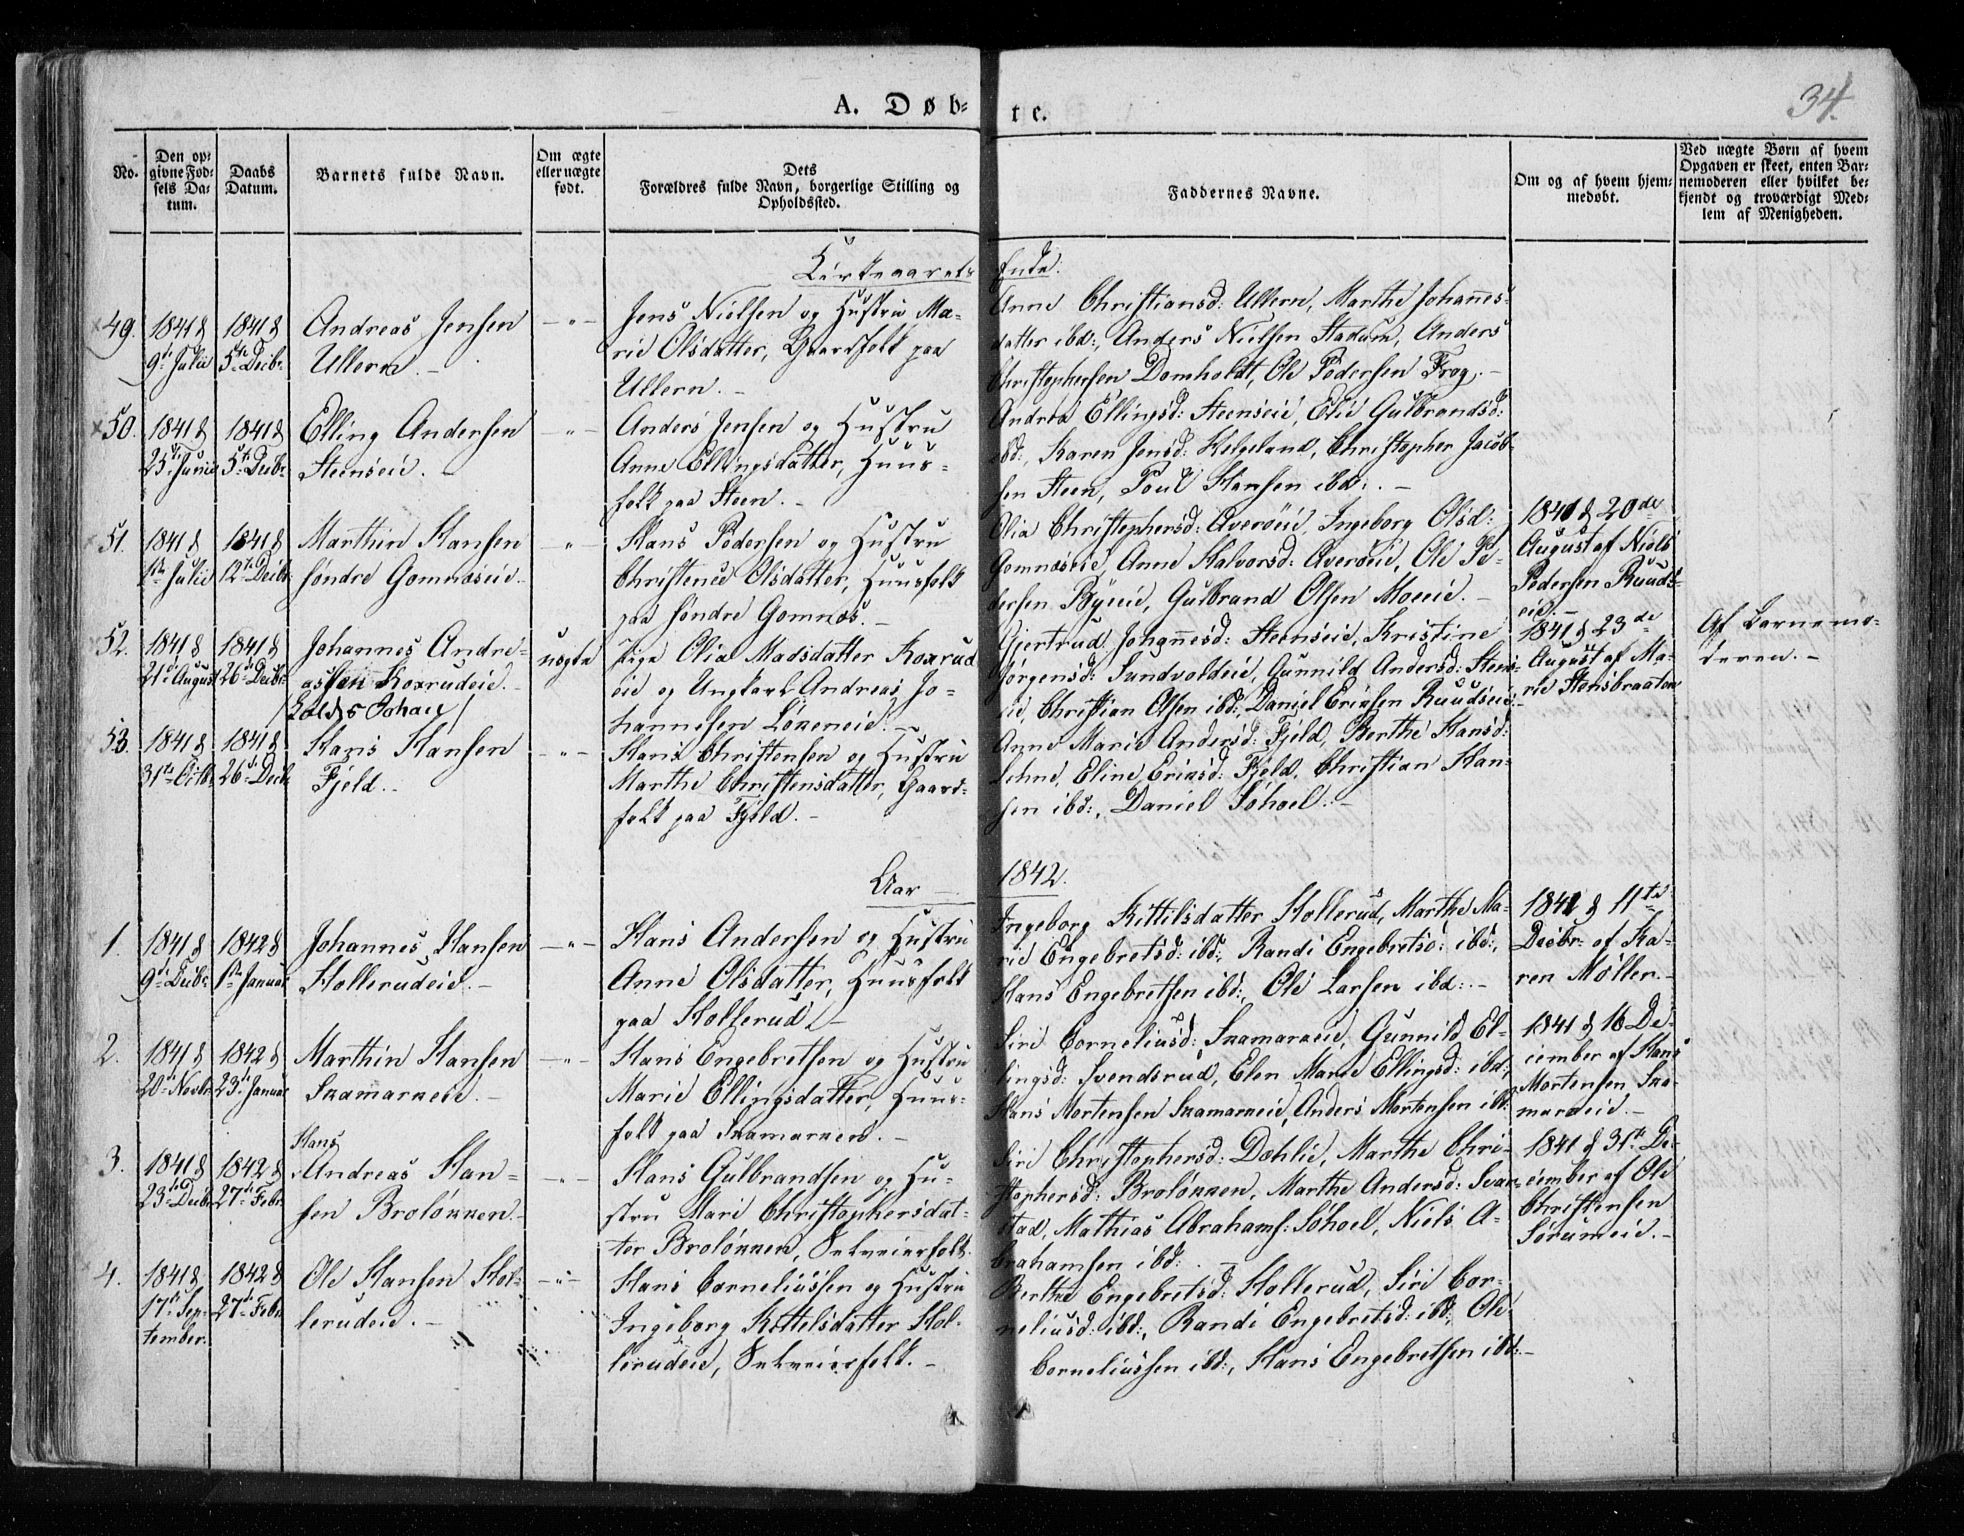 34.
A. Døb-
te.
No.
Den op-
givne Fød-
sels Da-
tum.
Daabs
Datum.
Barnets fulde Navn.
Om ægte
eller uægte
født.
Dets
Forældres fulde Navn, borgerlige Stilling og
Opholdssted.
Faddernes Navne.
Om og af hvem hjem-
medøbt.
Ved uægte Børn af hvem
Opgaven er skeet, enten Bar-
nemoderen eller hvilket be-
kjendt og troværdigt Med-
lem af Menigheden.
Kirkeaarets
Ende.
49.
1841 d
9de Julii
1841 d
5te Decbr
Andreas Jensen
Ullern.-
-"-
Jens Nielsen og Hustru Ma-
rie Olsdatter, Gaardfolk paa
Ullern.-
Anne Christiansd: Ullern, Marthe Johannes-
datter ibd:, Anders Nielsen Stadum, Anders
Christophersen Domholdt, Ole Pedersen Frog.-
50.
1841 d
25de Junii
1841 d
5te Decbr
Elling Andersen
Steenseie.-
-"-
Anders Jensen og Hustru
Anne Ellingsdatter, Huus-
folk paa Steen.-
Andrea Ellingsd: Steenseie, Elie Gulbrandsd:
ibd:, Karen Jensd: Helgeland, Christopher Jacob-
sen Steen, Poul Hansen ibd:.-
51.
1841 d
1ste Julii
1841 d
12te Decbr
Marthin Hansen
søndre Gomnæseie.
-"-
Hans Pedersen og Hustru
Christense Olsdatter, Huusfolk
paa søndre Gomnæs.-
Olia Christophersd: Averøeie, Ingeborg Olsd:
Gomnæseie, Anne Halvorsd: Averøeie, Ole Pe-
dersen Byeie, Gulbrand Olsen Moeeie.-
1841 d 20de
August af Niels
Pedersen Ruuds-
eie.-
52.
1841 d
21de August
1841 d
26de Decbr
Johannes Andre-
assen Koxrudeie.-
/Kaldes Johan/
uægte
Pige Olia Madsdatter Koxrud-
eie og Ungkarl Andreas Jo-
hannesen Løkeneie.-
Gjertrud Johannesd: Steenseie, Kristine
Jørgensd: Sundvoldeie, Gunnild Andersd: Steens-
eie, Christian Olsen ibd:, Daniel Eriksen Ruudseie.-
1841 d 23de
August af Ma-
rte Steensbraaten
Af Barnemo-
deren.-
53.
1841 d
31te Octbr
1841 d
26de Decbr
Hans Hansen
Fjeld.-
-"-
Hans Christensen og Hustru
Marthe Christensdatter, Gaard-
folk paa Fjeld.-
Anne Marie Andersd: Fjeld, Berthe Hansd:
Lehne, Eline Eriksd: Fjeld, Christian Han-
sen ibd:, Daniel Søhoel.-
Aar
1842.
1.
1841 d
9de Decbr
1842 d
1ste Januar
Johannes Hansen
Hollerudeie.-
-"-
Hans Andersen og Hustru
Anne Olsdatter, Huusfolk
paa Hollerud.-
Ingeborg Kittilsdatter Hollerud, Marthe Ma-
rie Engebretsd: ibd:, Randi Engebretsd: ibd:,
Hans Engebretsen ibd:, Ole Larsen ibd:.-
1841 d 11te
Decbr af Ka-
ren Møller.-
2.
1841 d
20de Novbr
1842 d
23de Januar
Marthin Hansen
Skamarkeie.-
-"-
Hans Engebretsen og Hustru
Marie Ellingsdatter, Huus-
folk paa Skamarken.-
Siri Corneliusd: Skamarkeie, Gunnild El-
lingsd: Svendsrud, Elen Marie Ellingsd: ibd:,
Hans Mortensen Skamarkeie, Anders Mortensen ibd:
1841 d 16 De-
cember af Hans
Mortensen Ska-
markeie.-
3.
1841 d
23de Decbr
1842 d
27de Febr
Hans
Andreas Han-
sen Broløkken.-
-"-
Hans Gulbrandsen og Hu-
stru Mari Christophersdat-
ter Broløkken, Selveierfolk.
Siri Christophersd: Dæhlie, Marthe Chri-
stophersd: Broløkken, Marthe Andersd: Svar-
stad, Mathias Abrahams: Søhoel, Niels A-
brahamsen ibd:.-
1841 d 31te De-
cember af Ole
Christensen
Sørumeie.-
4.
1841 d
17de Sep-
tember.
1842 d
27de Febr
Ole Hansen Hol-
lerudeie.-
-"-
Hans Corneliussen og Hustru
Ingeborg Kittelsdatter Hol-
lerudeie, Selveierfolk.-
Berthe Engebretsd: Hollerud, Siri Cor-
neliusd: ibd:, Randi Engebretsd: ibd:, Ole
Corneliussen ibd:, Hans Engebretsen ibd:-